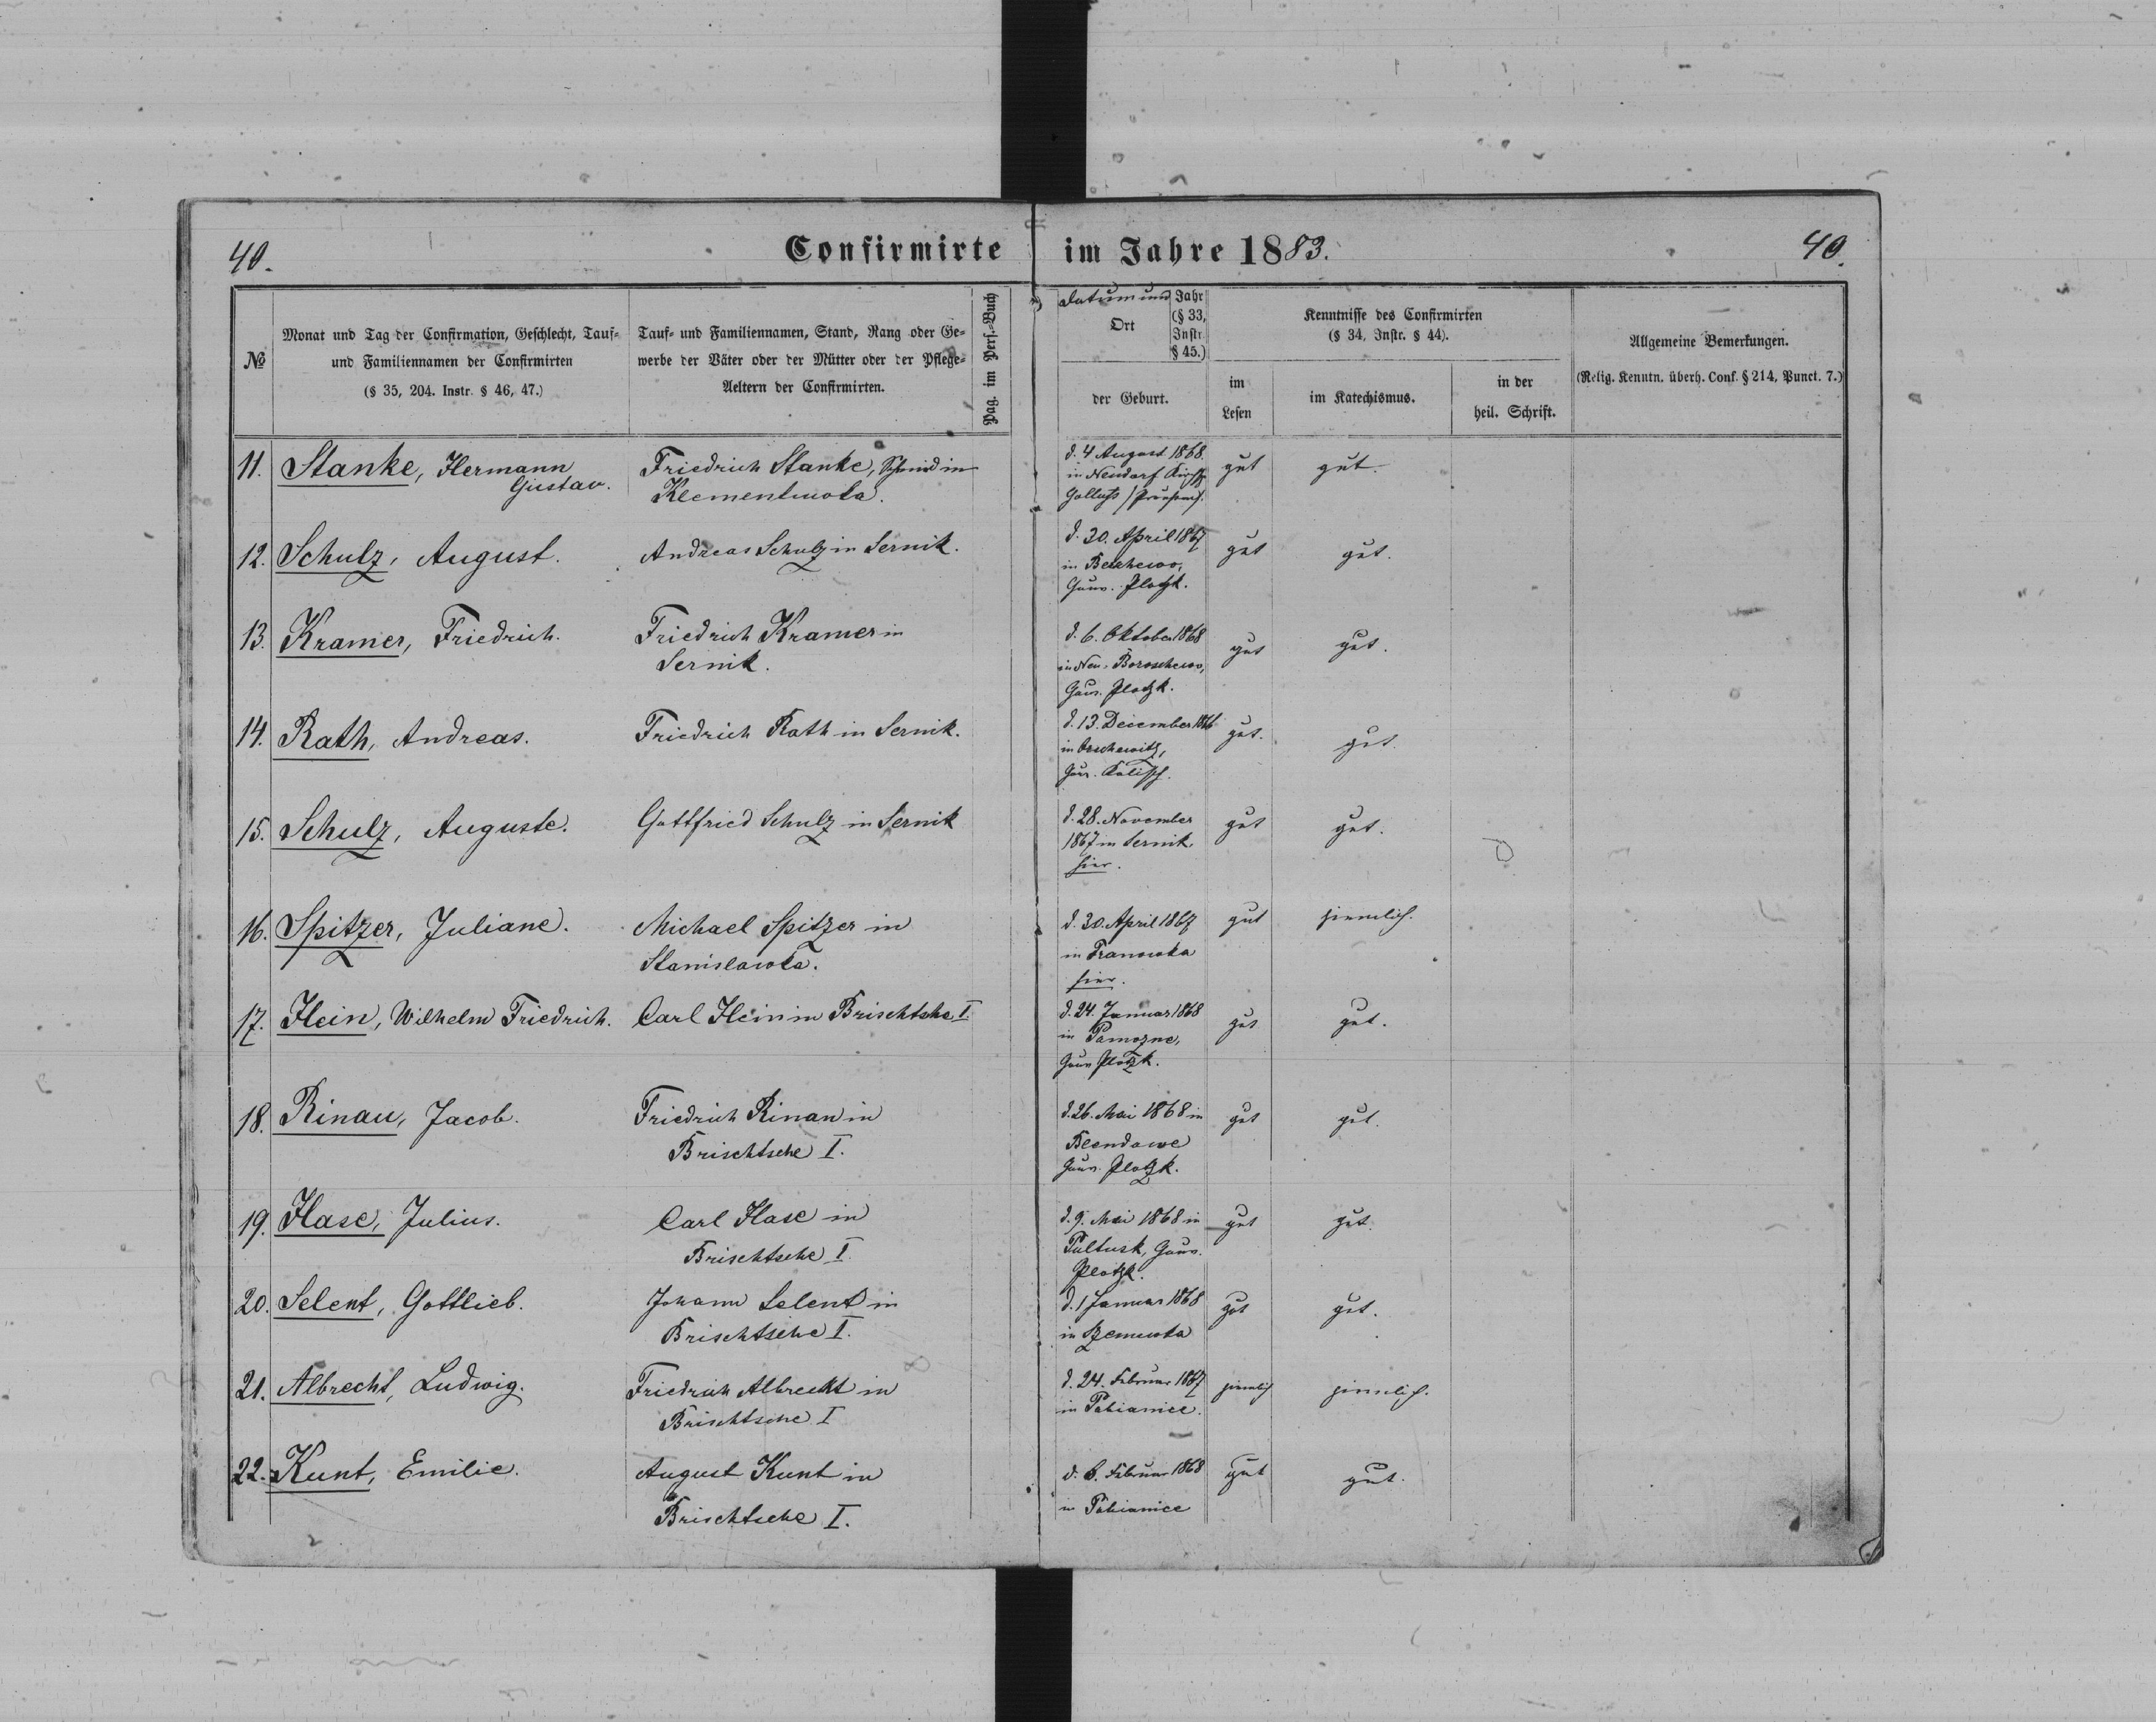 40.
Confirmirte im Jahre 1883.
40.
№
Monat und Tag der Confirmation, Geschlecht, Tauf-
und Familiennamen der Confirmirten
(§ 35, 204. Instr. § 46, 47.)
Tauf- und Familiennamen, Stand, Rang oder Ge-
werbe der Väter oder der Mütter oder der Pflege-
Aeltern der Confirmirten.
Pag. im Pers.-Buch
Datum und Jahr
Ort
(§ 33,
Instr.
§ 45.)
der Geburt.
Kenntnisse des Confirmirten
(§ 34, Instr. § 44).
im
Lesen
im Katechismus.
in der
heil. Schrift.
Allgemeine Bemerkungen.
(Relig. Kenntn. überh. Conf. § 214, Punct. 7.)
11. Stanke, Hermann
Gustav.
Friedrich Stanke, Schmid in
Klementwola.
d. 4 August 1868.
in Neudorf
gut
gut.
12. Schulz, August.
Andreas Schulz in Sernik.
d. 30. April 1867
in
Gouv. Plotzk.
gut
gut.
13. Kramer, Friedrich.
Friedrich Kramer in
Sernik.
d. 6. Oktober 1868
in Neu-Boroschewo,
Gouv. Plotzk.
gut
gut.
14. Rath, Andreas.
Friedrich Rath in Sernik.
d. 13. December 1866
in Orschewitz,
Gouv. Kalisch.
gut.
gut.
15. Schulz, Auguste.
Gottfried Schulz in Sernik
d. 28. November
1867 in Sernik
hier.
gut
gut.
16. Spitzer, Juliane.
Michael Spitzer in
Stanislawka.
d. 30. April 1867
in
hier.
gut
ziemlich.
17. Hein, Wilhelm Friedrich.
Carl Hein in Brischtsche I.
d. 24. Januar 1868
in Pamozne,
Gouv Plotzk.
gut
gut.
18. Rinau, Jacob.
Friedrich Rinau in
Brischtsche I.
d. 26. Mai 1868 in
Blendowe
Gouv. Plotzk.
gut
gut.
19. Hase, Julius.
Carl Hase in
Brischtsche I.
d. 9. Mai 1868 in
Pultusk, Gouv.
Plotzk.
gut
gut.
20. Selent, Gottlieb.
Johann Selent in
Brischtsche I.
d. 1 Januar 1868
in
gut
gut.
21. Albrecht, Ludwig.
Friedrich Albrecht in
Brischtsche I
d. 24. Februar 1867
in Pabianice.
ziemlich
ziemlich.
22. Kunt, Emilie.
August Kunt in
Brischtsche I.
d. 6. Februar 1868
in Pabianice
gut
gut.